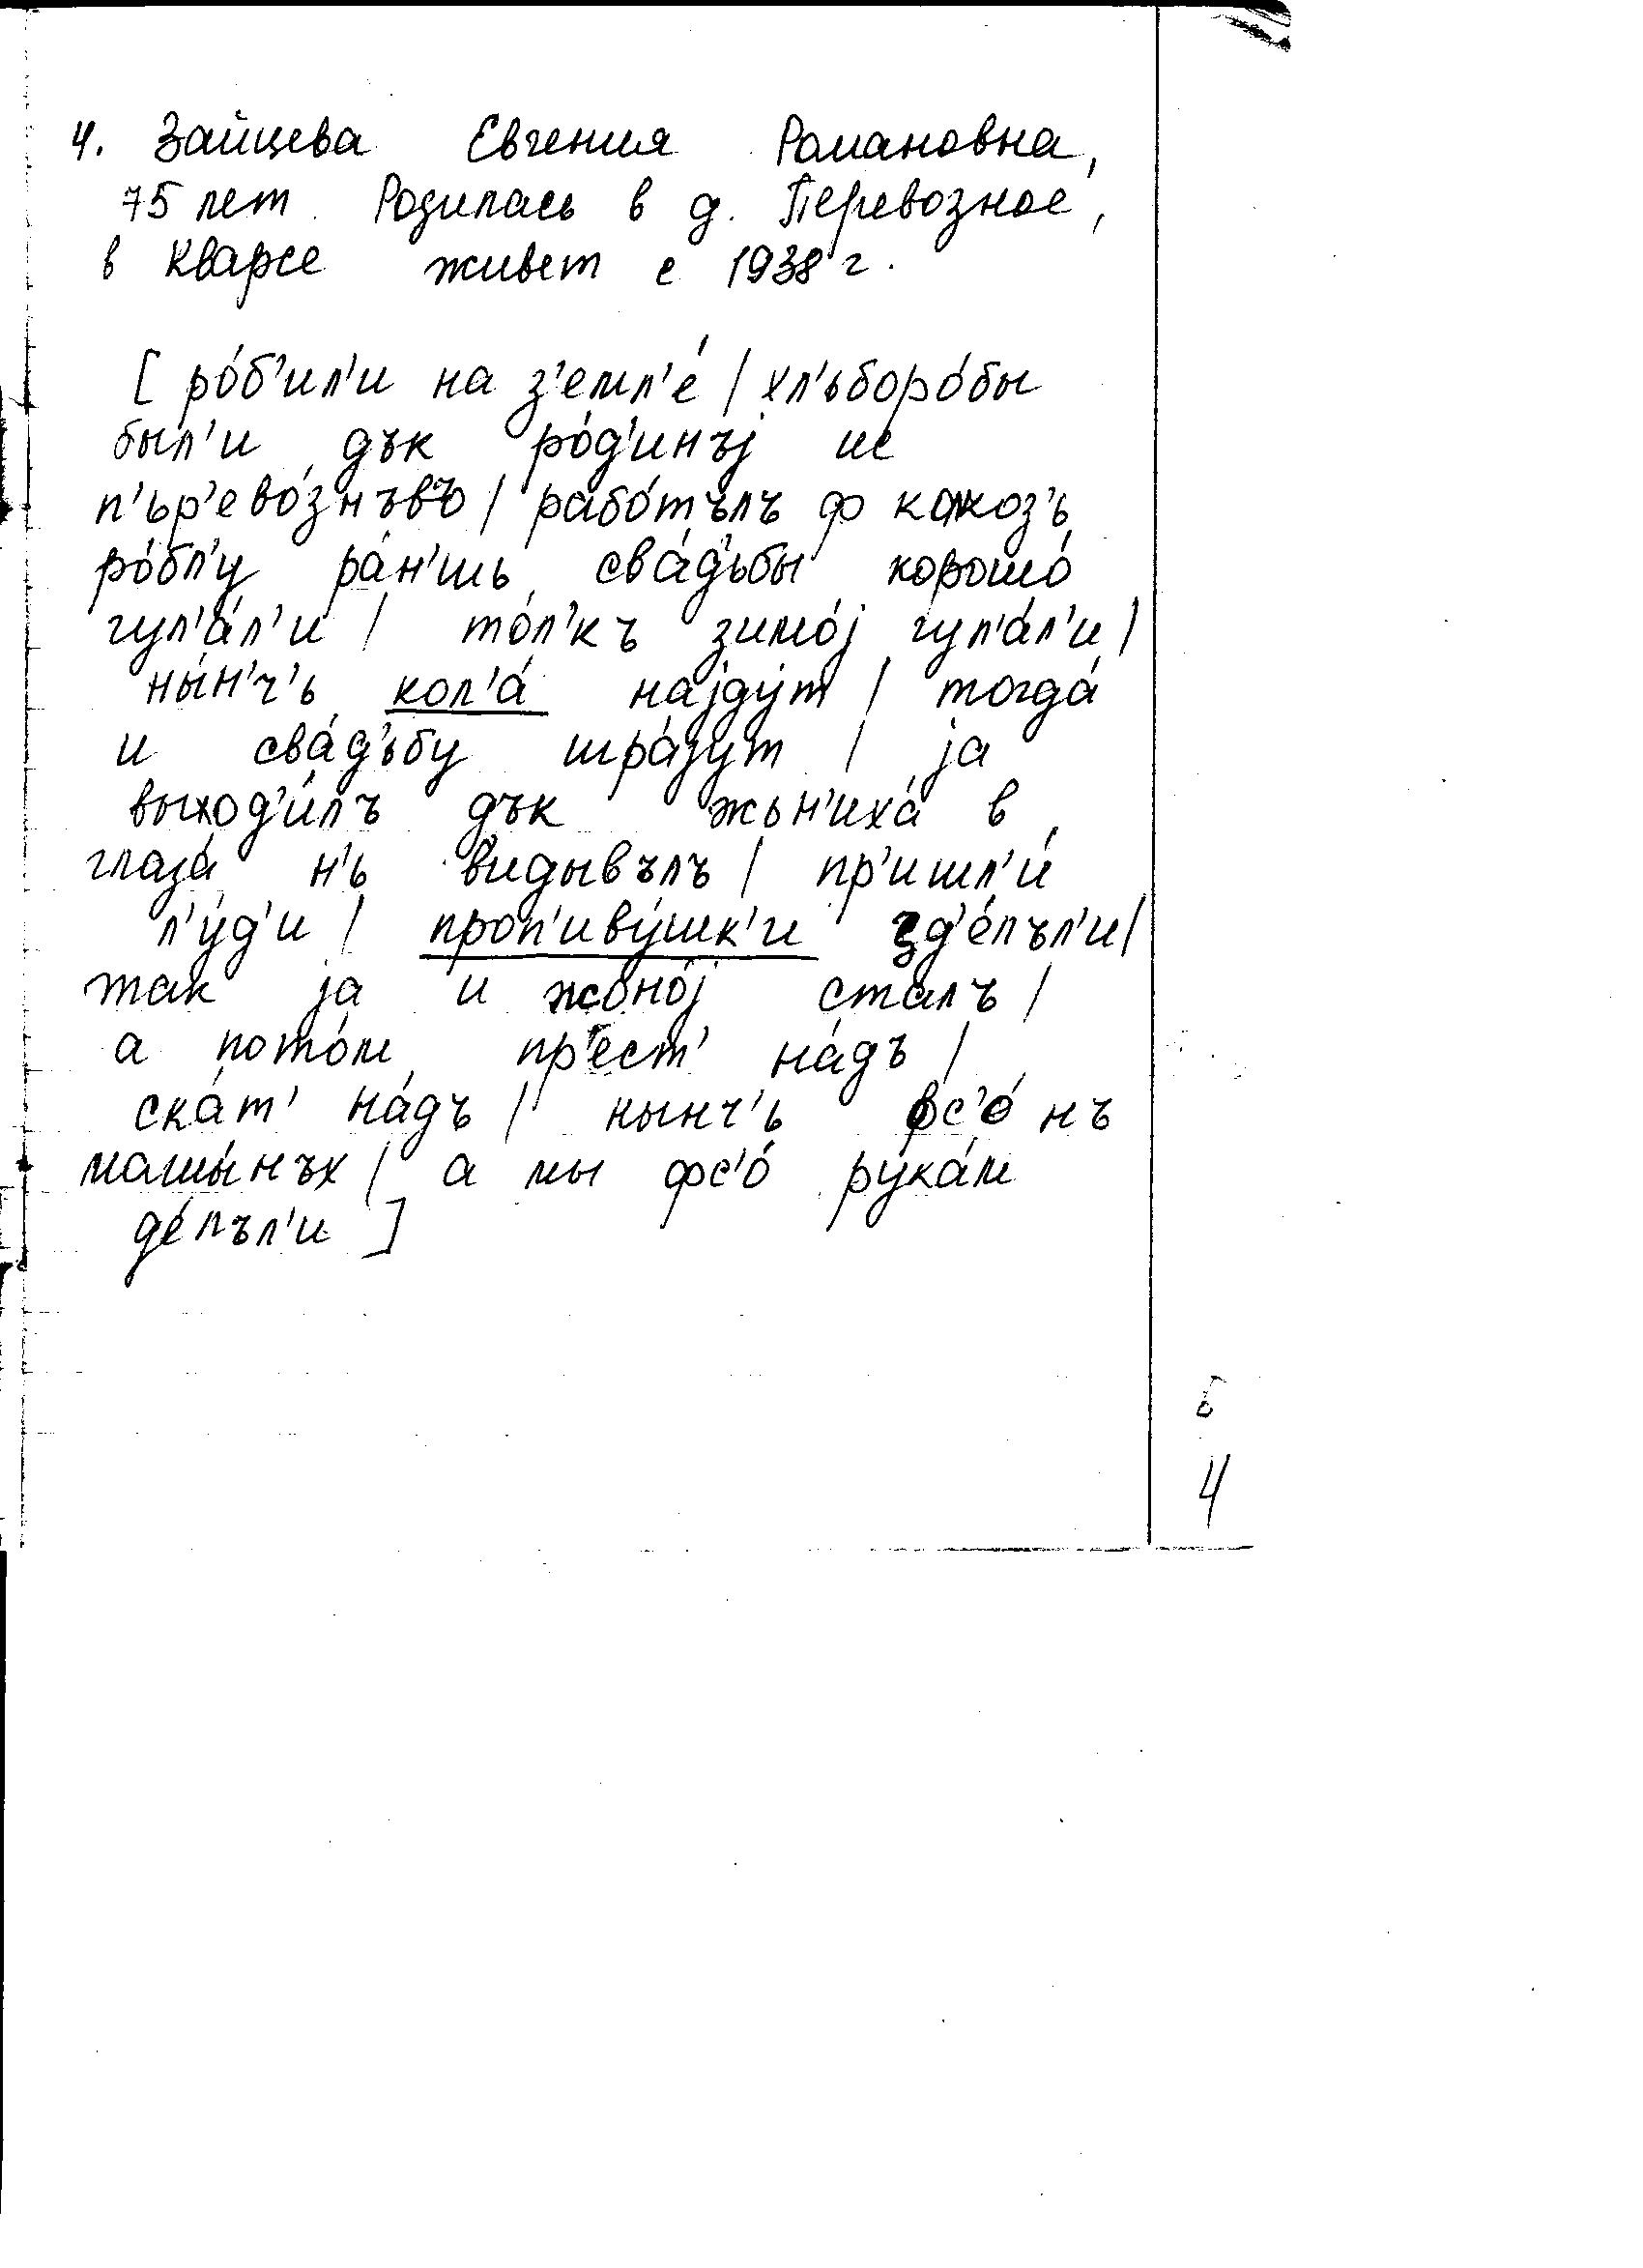 4. Зайцева Евгения Романовна,
75 лет. Родилась в д. Перевозное,
в Кварсе живет с 1938 г.
[ ро́б'ил'и на з'емл'е́ | хл'ьборо́бы
был'и дък ро́д'инъj ис
п'ьр'ево́знъвъ | рабо́тълъ ф колхоз'ь
ро́бл'у ра́н'шь сва́д'ьбы хорошо́
гул'а́л'и | то́л'къ зимо́j гул'а́л'и |
ны́н'ч'ь кол'а́ наjду́т | тогда́
и сва́д'ьбу игра́jут | jа
выход'и́лъ дък жьн'иха́ в
глаза́ н'ь ви́дывълъ | пр'ишл'и́
л'у́д'и | проп'иву́шк'и зд'е́лъл'и |
так jа и жоно́j ста́лъ |
а пото́м пр'ест' на́дъ |
ска́т' на́дъ | нынч'ь фс'о́ нъ
машы́нъх | а мы фс'о́ рука́м
де́лъл'и ]
б
4